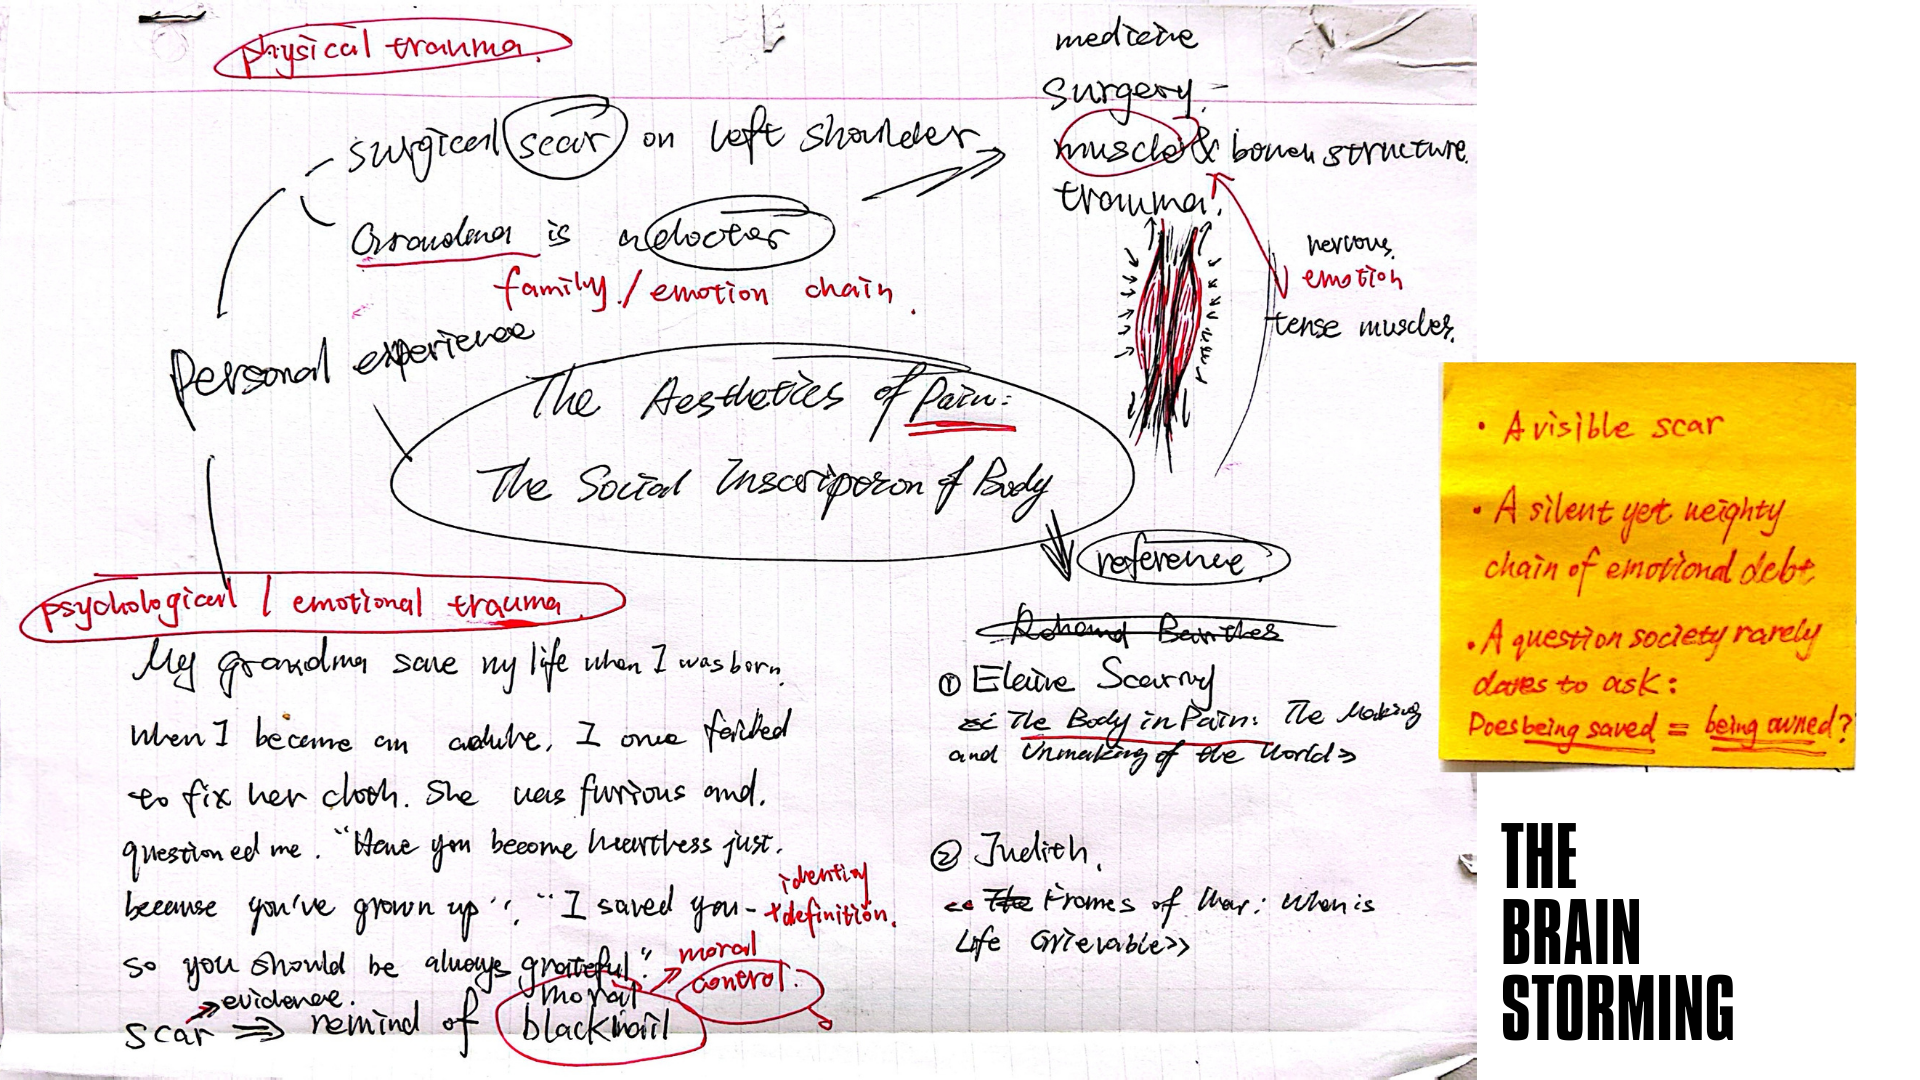 physical trauma.
surgical scar on left shoulder
Grandma is a doctor
family / emotion chain.
medicine
surgery.
muscle & bonen structure.
trauma.
nervous.
emotion
tense muscles.
Personal experience
The Aesthetics of Pain:
The Social Inscriperon of Body
reference.
psychological / emotional trauma.
My grandma save my life when I was born.
when I became an adulte, I once failed
to fix her cloth. She was furious and.
questioned me. "Have you become heartless just.
because you've grown up". "I saved you-
identity
+definition.
so you should be always grateful".
moral
control.
evidence.
scar ⇒ remind of moral
blackmail
① Elaine Scarry
The Body in Pain: The Making
and Unmaking of the World>
② Judith.
<< The Frames of War: When is
Life Grievable>>
• A visible scar
• A silent yet weighty
chain of emotional debt
• A question society rarely
dares to ask:
Does being saved = being owned?
THE
BRAIN
STORMING